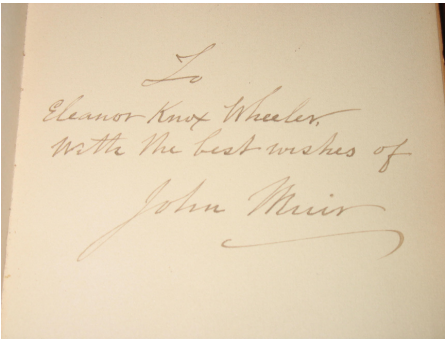 To
Eleanor Knox Wheeler,
With the best wishes of
John Muir